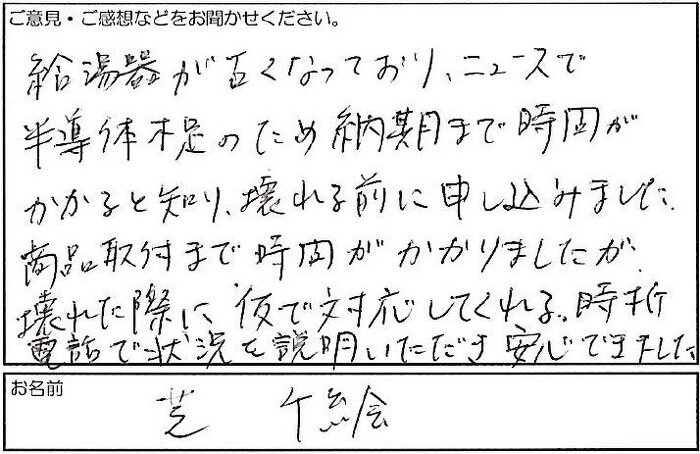 ご意見・ご感想などをお聞かせください。
給湯器が古くなっており、ニュースで
半導体不足のため納期まで時間が
かかると知り、壊れる前に申し込みました。
商品取付まで時間がかかりましたが、
壊れた際に仮で対応してくれる。時折
電話で状況を説明いただき安心できました
お名前
芝 千絵